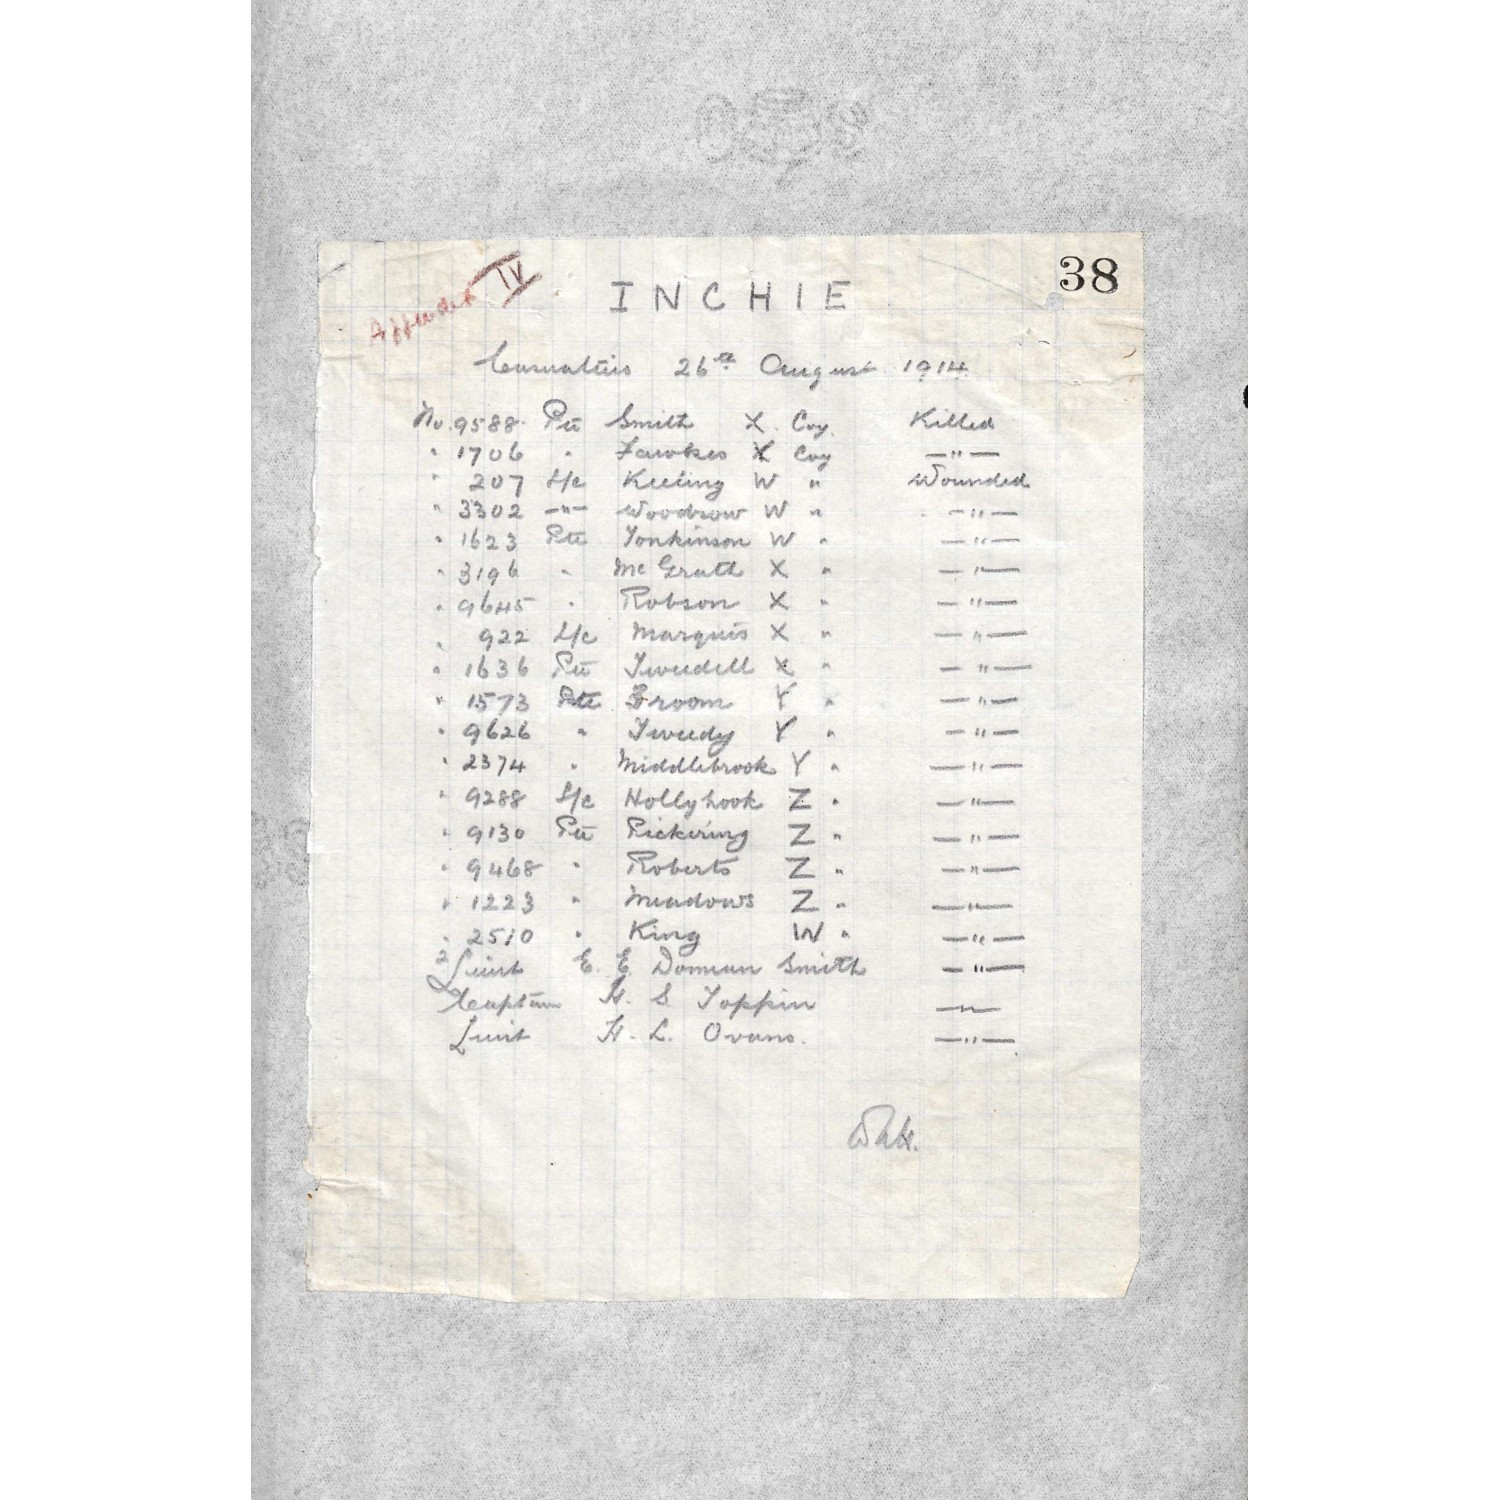 Appendix IV
38
INCHIE
Casualties 26th August 1914.
No. 9588 Pte Smith X. Coy. Killed
" 1706 " Fawkes X Coy — " —
" 207 L/c Keeling W " Wounded
" 3302 — " — Woodrow W " — " —
" 1623 Pte Tonkinson W " — " —
" 3196 " McGrath X " — " —
" 9645 " Robson X " — " —
" 922 L/c Marquis X " — " —
" 1636 Pte Tweedell X " — " —
" 1573 Pte Broom Y " — " —
" 9626 " Tweedy Y " — " —
" 2374 " Middlebrook Y " — " —
" 9288 L/c Hollyhook Z " — " —
" 9130 Pte Pickering Z " — " —
" 9468 " Roberts Z " — " —
" 1223 " Meadows Z " — " —
" 2510 " King W " — " —
2 Lieut E. E. Dorman Smith — " —
Captain H. S. Toppin — " —
Lieut H. L. Ovans. — " —